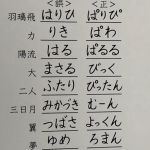 ＜誤＞ ＜正＞
羽璃飛 はりひ ぱりぴ
力 りき ぱわ
陽流 はる ぱるる
大 まさる びっく
二人 ふたり ぴったん
三日月 みかづき むーん
翼 つばさ よっくん
夢 ゆめ ろまん